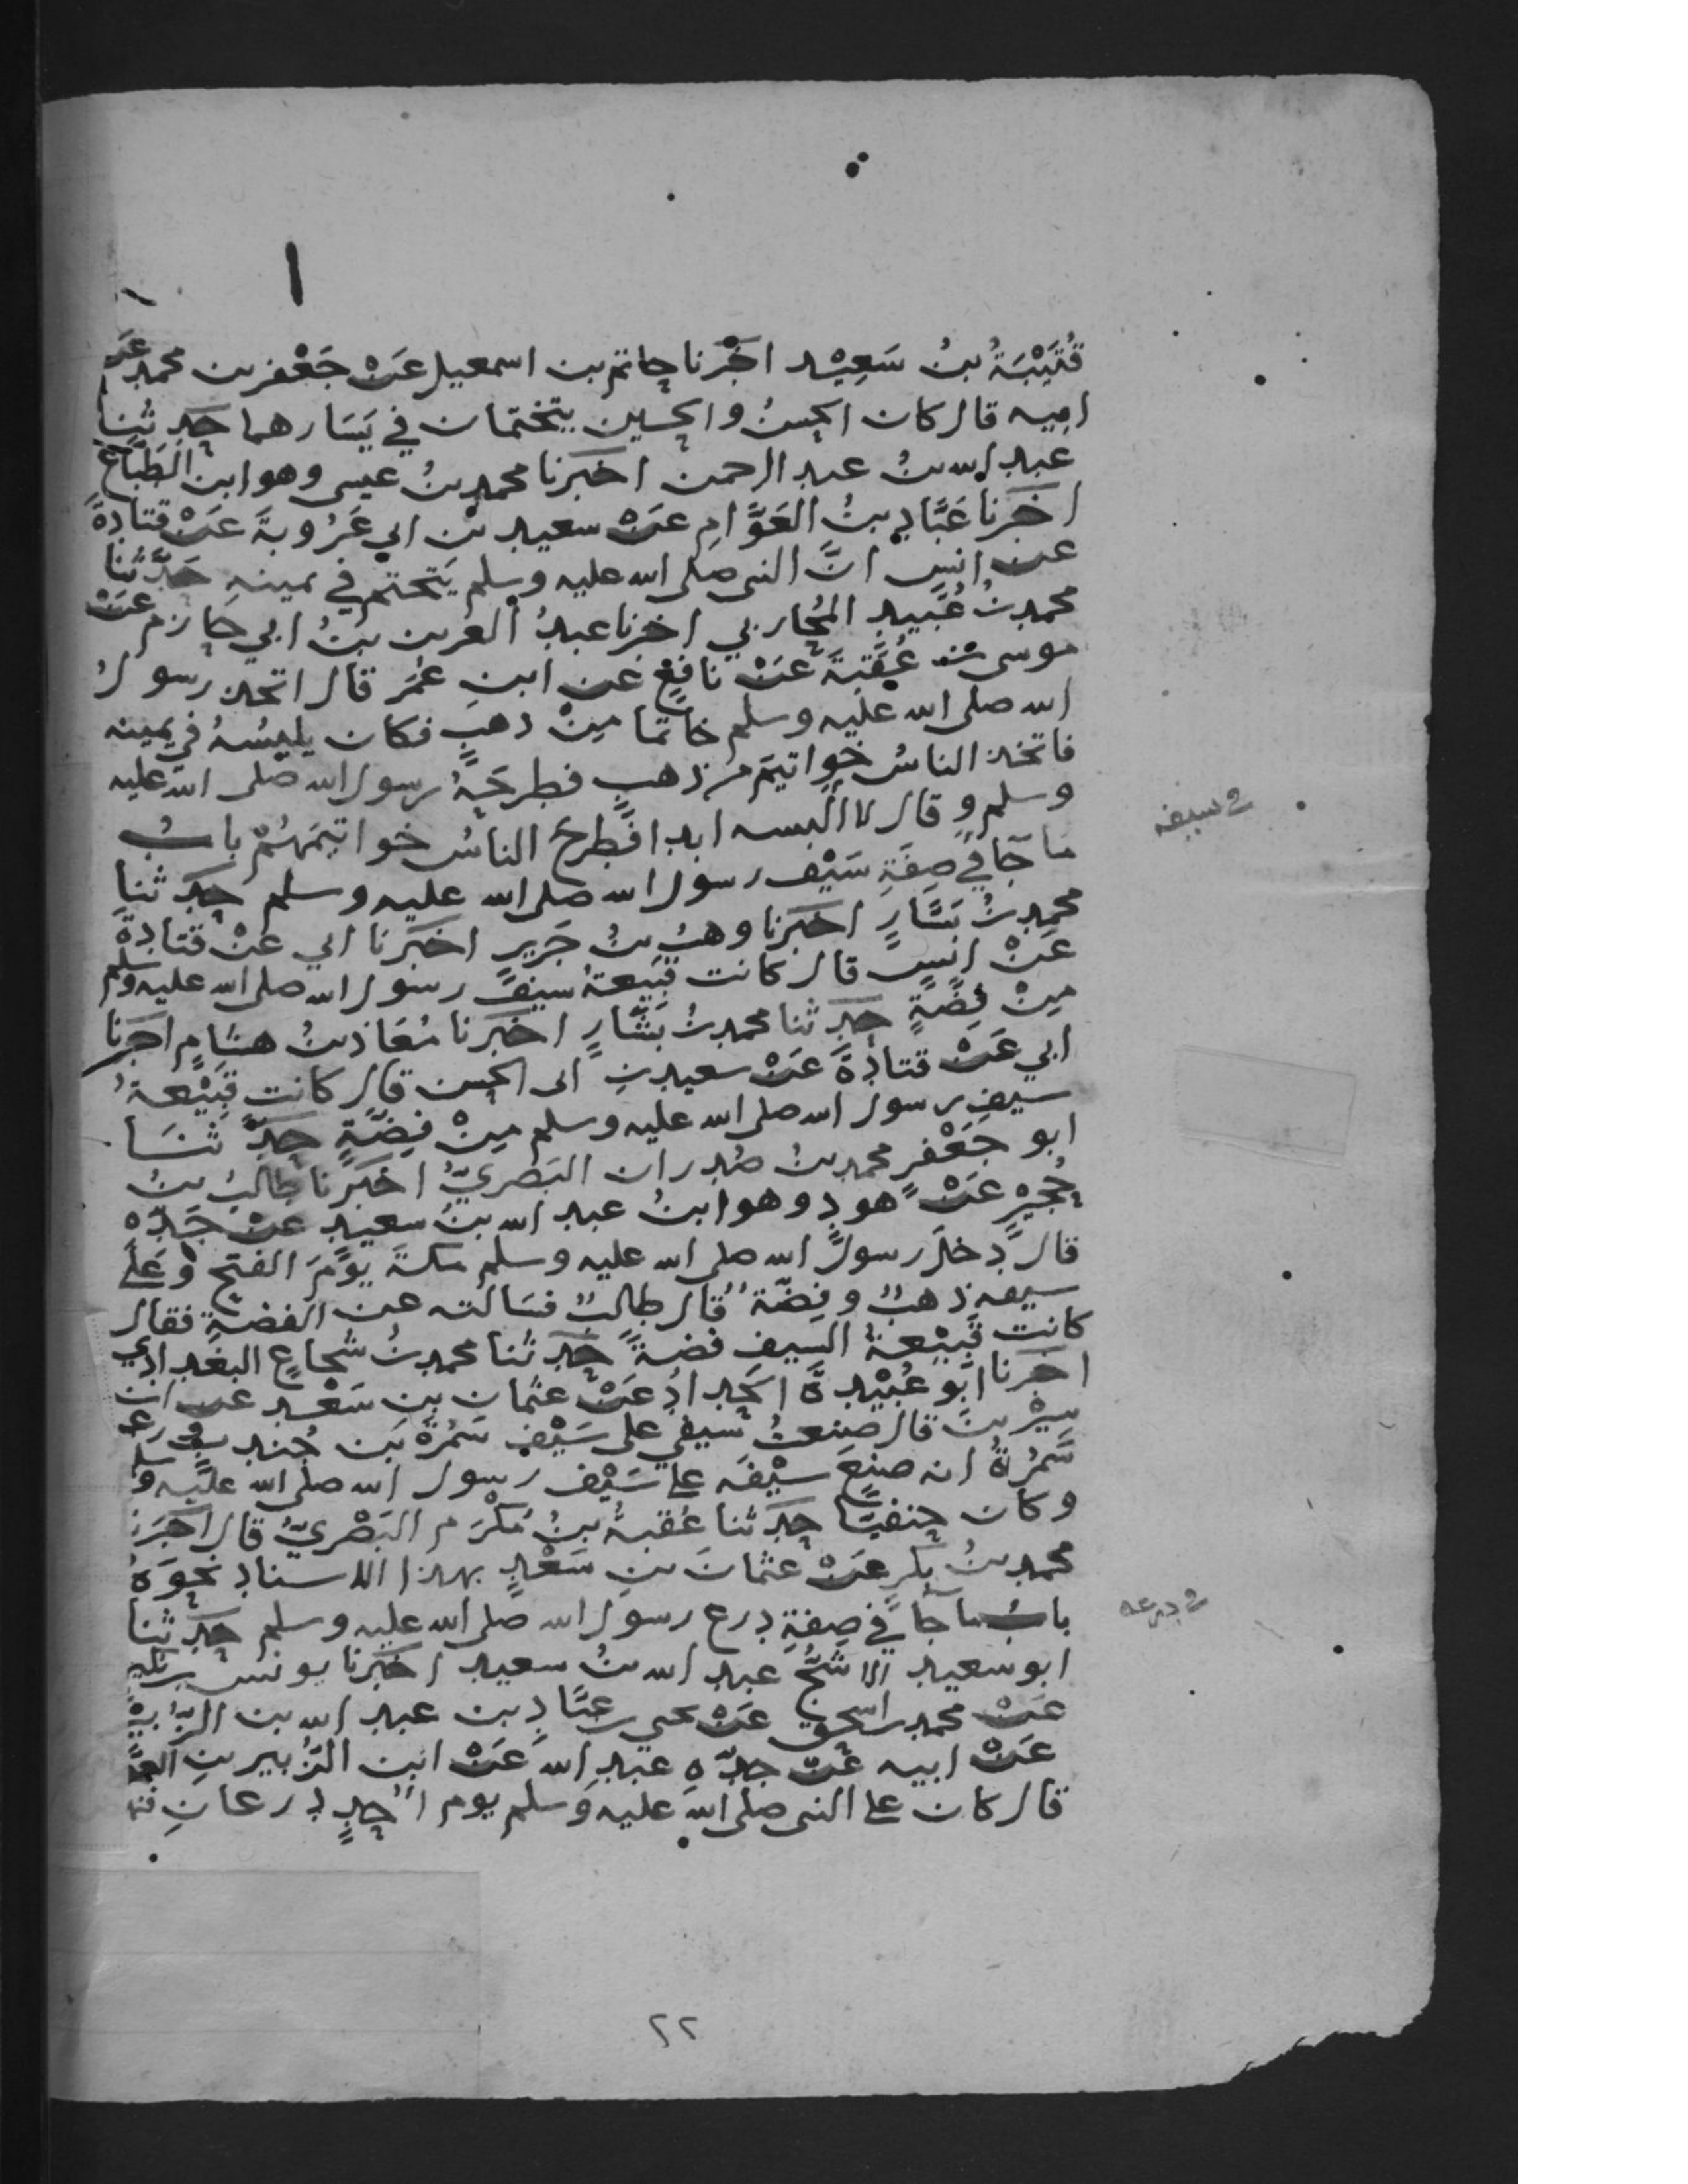 قُتَيْبَةُ بنُ سَعِيْد اخْبَرنا حاتم بن اسمعيل عَنْ جَعْفر بن محمد عَن
ابيه قال كان الحسنُ والحسين يتختمان في يَسَارهما حدثنا
عبد الله بنُ عبد الرحمن اخبرنا محمد بنُ عيسى وهو ابن الطَبّاع
اخبرنا عَبَّاد بنُ العَوَّامِ عَنْ سعيد بن ابي عَرُوبةَ عَنْ قتادةَ
عن انسٍ انَّ النبى صلى الله عليه وسلم يَتختم في يمينه حَدَّثنا
محمد بنُ عُبَيد المُحاربي اخبرنا عبدُ العزيز بنُ ابي حازم عَنْ
موسى بن عُقبَةَ عَنْ نافعٍ عن ابنِ عُمَر قال اتخذ رسولُ
الله صلى الله عليه وسلم خاتمًا مِنْ ذهبٍ فكان يلبسُهُ في يمينه
فاتخذ الناسُ خواتيمَ من ذهبٍ فطرحَهُ رسول الله صلى الله عليه
وسلم وقال لا البسه ابدا فطرحَ الناسُ خواتيمَهُمْ بابُ
ما جَا في صِفَةِ سَيْف رسول الله صلى الله عليه وسلم حدثنا
في سيفه
محمد بنُ بَشّارٍ اخبرنا وهبُ بنُ جَريرٍ اخبرنا ابي عَنْ قتادةَ
عَنْ انسٍ قال كانت قَبِيعةُ سيف رسول الله صلى الله عليه وسلم
مِنْ فِضَّةٍ حدثنا محمد بنُ بَشَّارٍ اخبرنا مُعَاذ بنُ هشامٍ اخبرنا
ابي عَنْ قتادةَ عَنْ سعيد بنِ ابى الحسن قال كانت قَبِيْعةُ
سيفِ رسول الله صلى الله عليه وسلم مِنْ فِضَّةٍ حدَّ ثنَا
ابو جَعْفرٍ محمد بنُ صُدران البَصْريُّ اخبرنا طالبُ بنُ
حُجَيرٍ عَنْ هودٍ وهو ابنُ عبد الله بنُ سعيدٍ عَنْ جَدِّه
قال دخلَ رسولُ الله صلى الله عليه وسلم مكةَ يوْمَ الفتح وعَلَى
سيفه ذهبٌ وفِضَّةٌ قال طالبٌ فسَالته عن الفضةِ فقال
كانت قَبِيْعةُ السيفِ فضةً حدثنا محمد بنُ شُجاعٍ البغدادي
اخبرنا ابُو عُبَيْدةَ الحَدادُ عَنْ عثمان بن سَعْدٍ عن ابن
سِيْرينَ قال صنعتُ سيفي على سَيْفِ سَمُرَةَ بن جُندبٍ وزعم
سَمُرةُ انه صنعَ سيْفَه على سَيْف رسول الله صلى الله عليه وسلم
وكان حنفيًّا حدثنا عُقبةُ بنُ مُكْرَم البَصْريُّ قال اخبرنا
محمد بنُ بَكرٍ عَنْ عثمانَ بنِ سَعْدٍ بهذا الاسناد نحوَهُ
بابُ ما جَا في صِفةِ درع رسول الله صلى الله عليه وسلم حدثنا
في درعه
ابو سعيد الاشجُّ عبد الله بنُ سعيد اخبرنا يونسُ بن بكير
عَنْ محمد بن اسحق عَنْ يحيى بن عبَّادِ بن عبد الله بن الزُّبير
عَنْ ابيه عَنْ جدّه عبدِ الله عَنْ ابن الزُبير بنِ العوّام
قال كان على النبى صلى الله عليه وسلم يوم اُحدٍ درعانِ فنهض
٢٢